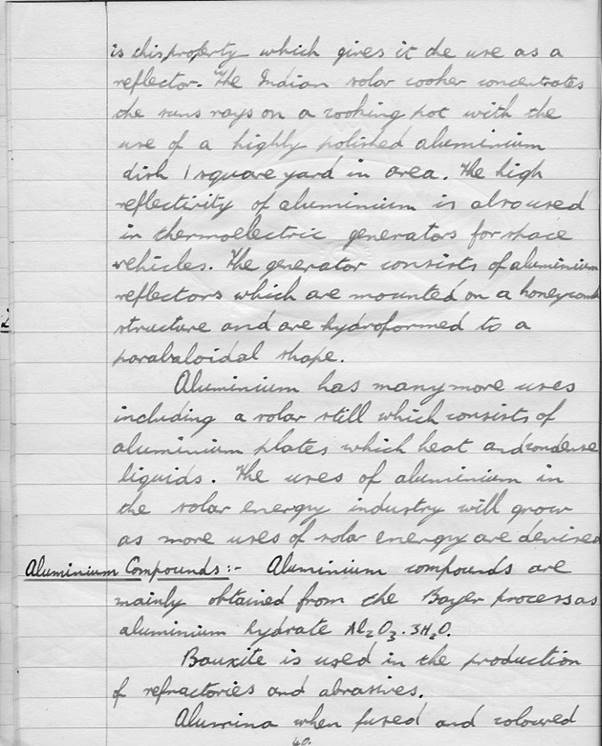 is this property which gives it the use as a
reflector. The Indian solar cooker concentrates
the suns rays on a cooking pot with the
use of a highly polished aluminium
dish 1 square yard in area. The high
reflectivity of aluminium is also used
in thermoelectric generators for space
vehicles. The generator consists of aluminium
reflectors which are mounted on a honeycomb
structure and are hydroformed to a
parabaloidal shape.
Aluminium has many more uses
including a solar still which consists of
aluminium plates which heat and condense
liquids. The uses of aluminium in
the solar energy industry will grow
as more uses of solar energy are devised
Aluminium Compounds:- Aluminium compounds are
mainly obtained from the Bayer process as
aluminium hydrate Al₂O₃.3H₂O.
Bauxite is used in the production
of refractories and abrasives.
Alumina when fused and coloured
40.